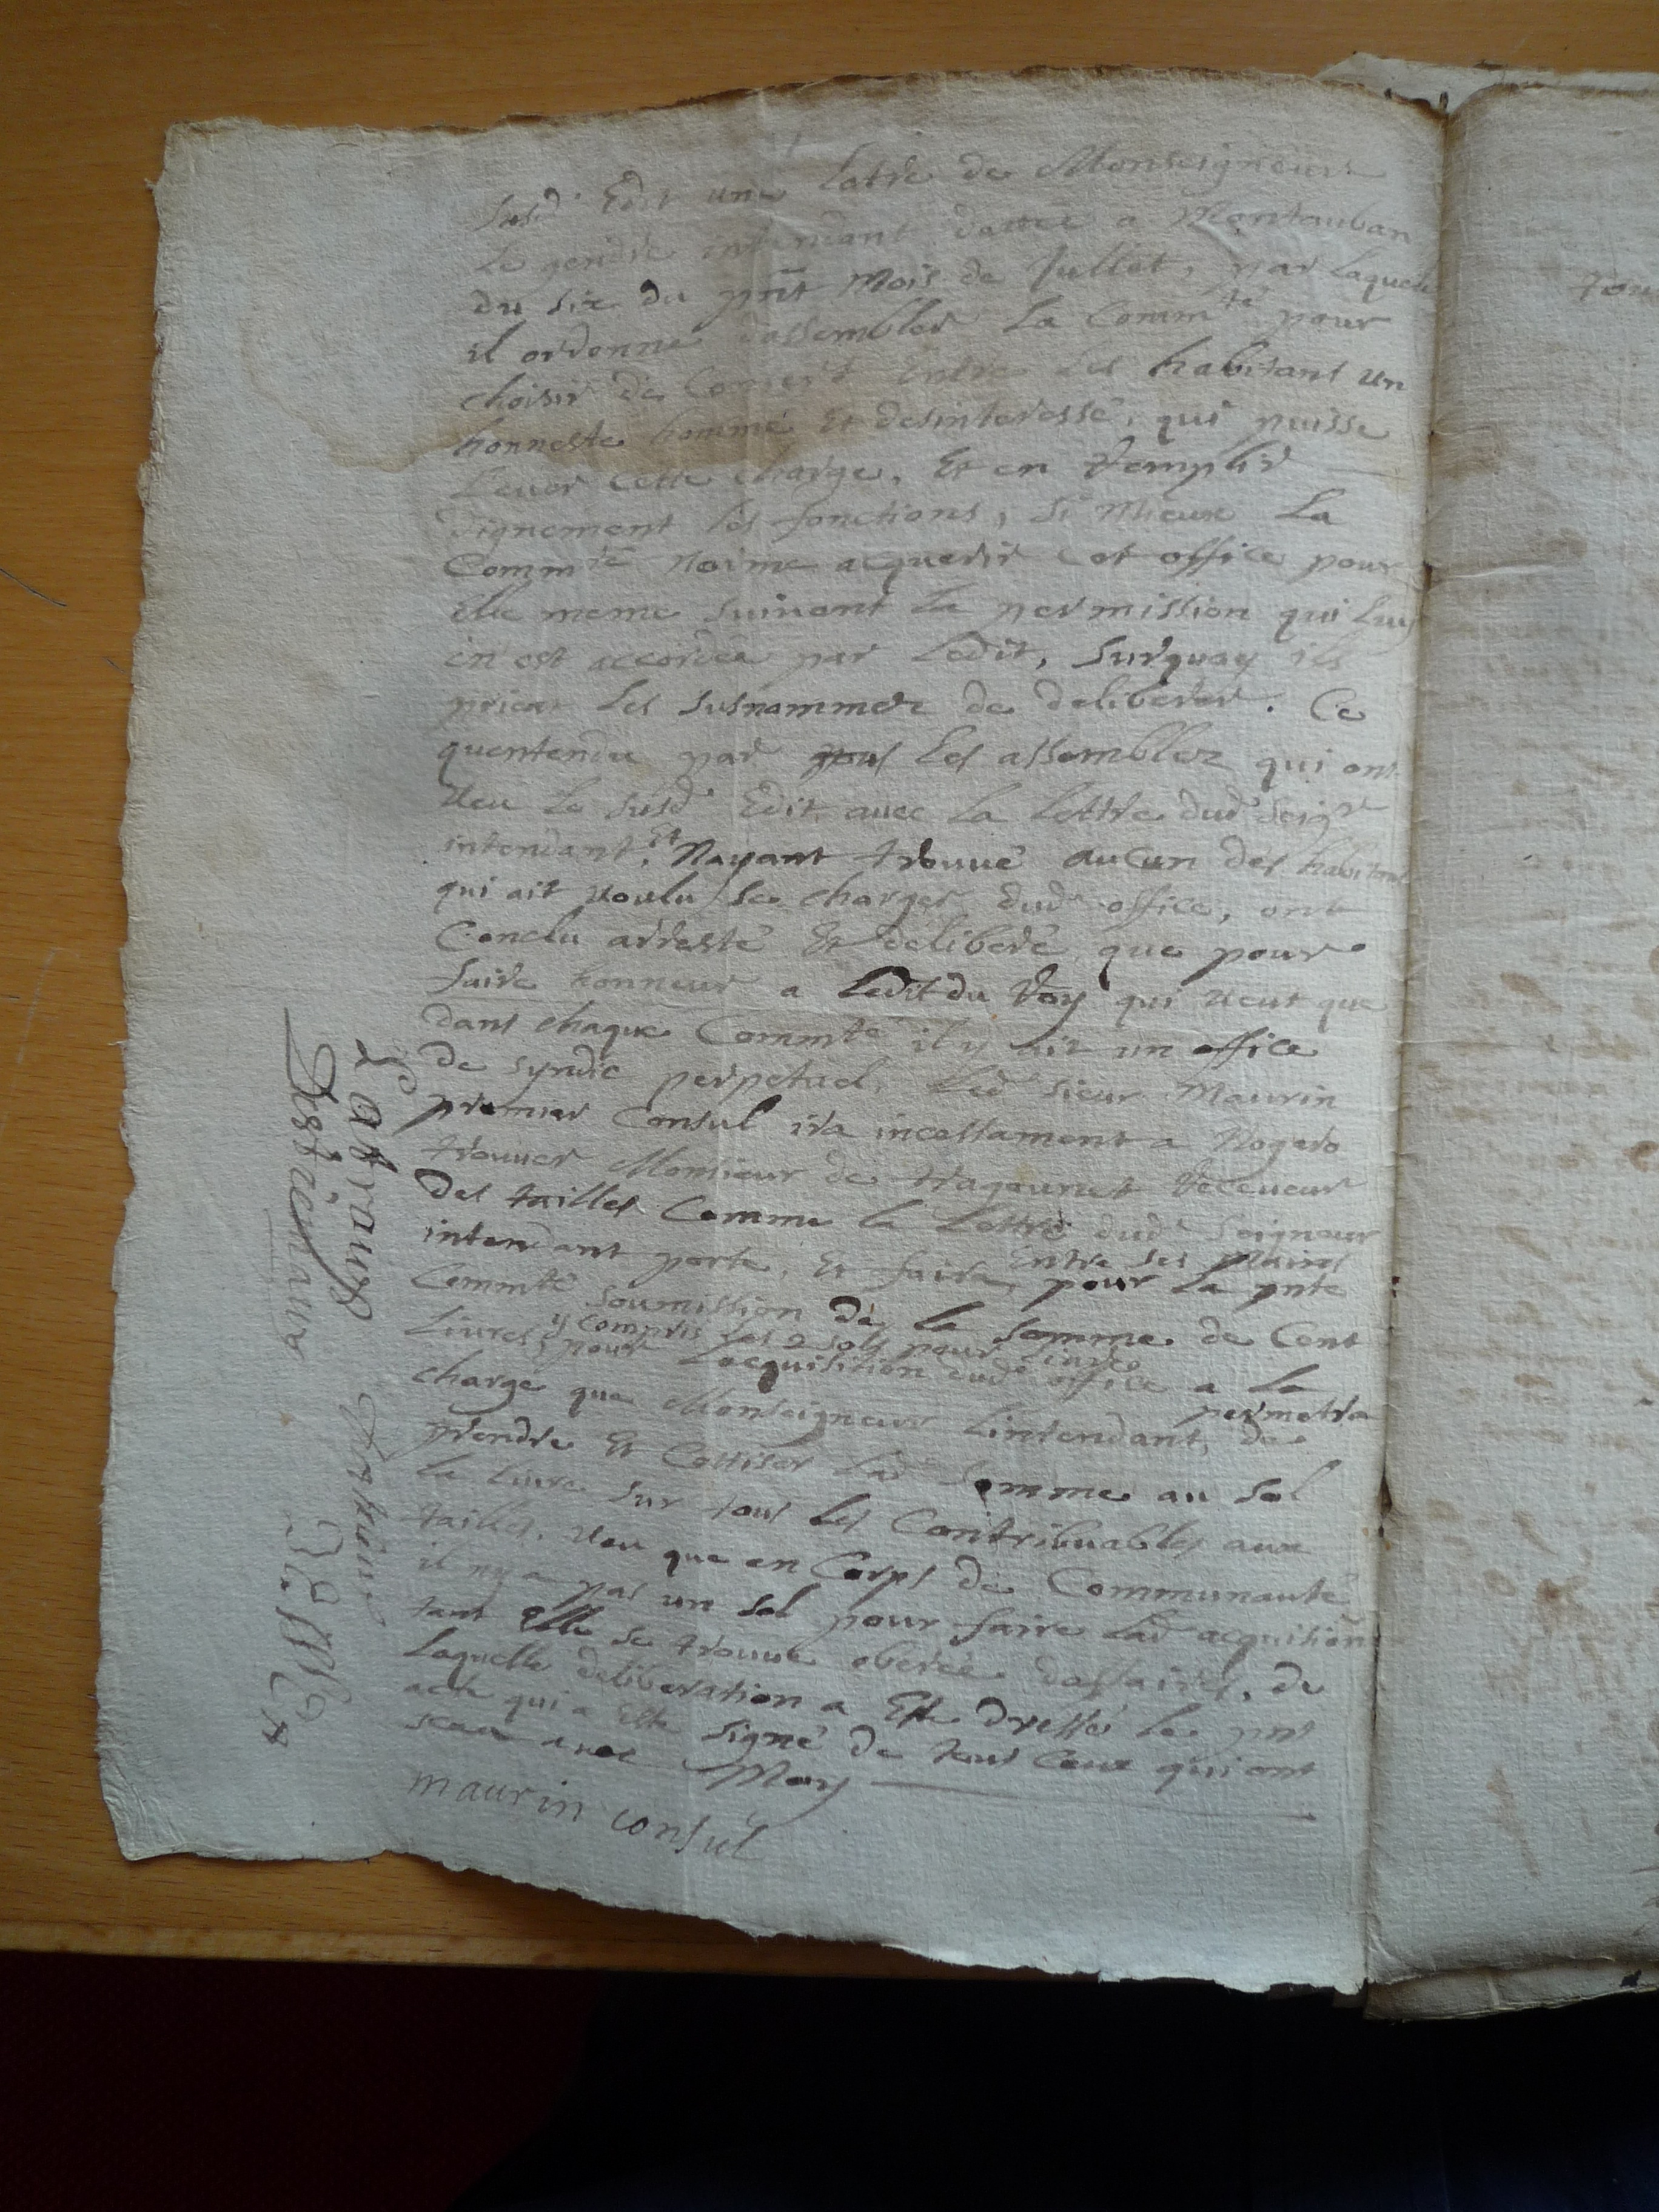 susd. Edit une lettre de Monseigneur
le gendre intendant dattée a Montauban
du six du pnt mois de Jullet, par laquelle
il ordonne dassembler La Commté pour
choisir de Concert entre les habitans un
honneste homme Et desinteressé, qui puisse
Lever cette charge, Et en remplir
dignement les fonctions, si mieux La
Commté naime acquerir cet office pour
elle meme suivant la permission qui luy
en est accordée par ledit, surquoy ils
prient les susnommez de deliberer. Ce
quentendu par les assemblez qui ont
veu le susd. Edit avec la lettre dud. seigr
intendant, Et Nayant trouvé aucun des habitans
qui ait voulu se charger dud. office, ont
Conclu arresté Et deliberé, que pour
faire honneur a Ledit du Roy qui veut que
dans chaque Commté il y ait un office
de syndic perpetuel, led. sieur Maurin
premier Consul ira incessament a Nogaro
trouver Monsieur de Receveur
des tailles Comme la lettre dud. seigneur
intendant porte, Et faire, Entre ses mains pour la pnte
Commté soumission de la somme de Cent
Livres, y compris les 2 sols pour livre pour Lacquisition dud. office a la
charge que Monseigneur Lintendant, permetra de
prendre Et Cottiser lad. somme au sol
la livre sur tous les Contribuables aux
tailles. Veu que en Corps de Communauté
il ny a pas un sol pour faire lad. acquition
tant Elle se trouve oberée daffaires, de
laquelle deliberation a Esté dressé le pnt
acte qui a Esté signé de tous Ceux qui ont
sceu avec Moy
maurin consul